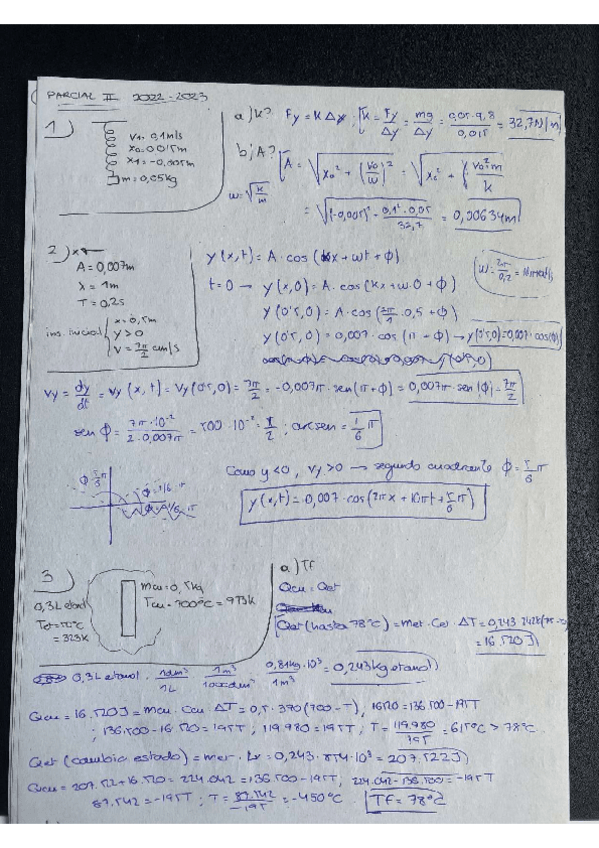 PARCIAL II 2022-2023
1)
V1 = 0,1m/s
x0=0,015m
x1=-0,005m
m=0,05kg
a) k? Fy = k Δy ; k = Fy/Δy = mg/Δy = 0,05·9,8/0,015 = 32,7N/m
b) A? A = √(x0² + (v0/w)²) = √(x0² + v0²·m/k)
w=√(k/m)
= √((-0,005)² - 0,1²·0,05/32,7) = 0,00634m
2) x←
A = 0,007m
λ = 1m
T = 0,2s
ins. inicial { x = 0,5m
y>0
v = 7π/2 cm/s
y(x,t) = A·cos(kx + wt + φ)
w = 2π/0,2 =
t=0 → y(x,0) = A·cos(kx + w·0 + φ)
y(0'5,0) = A·cos(2π/1 · 0,5 + φ)
y(0'5,0) = 0,007·cos(π + φ) → y(0'5,0)=0,007·cos(φ)
vy = dy/dt = vy(x,t) = vy(0'5,0) = 7π/2 = -0,007π·sen(π+φ) = 0,007π·sen(φ) = 7π/2
sen φ = 7π·10⁻²/2·0,007π = 500·10⁻² = ; arcsen = 1/6 π
Como y<0, vy>0 → segundo cuadrante φ = 5/6 π
y(x,t) = 0,007·cos(2πx + 10πt + 5/6 π)
3)
0,3L etanol
= 323K
mcu = 0,5kg
Tcu = 700ºC = 973K
a) Tf
Qcu = Qet
Qet (hasta 78ºC) = met·Ce·ΔT = 0,243·
= 16.520J
0,3L etanol · 1dm³/1L · 1m³/1000dm³ · 0,81kg·10³/1m³ = 0,243kg etanol
Qcu = 16.520J = mcu·Ccu·ΔT = 0,5·390(700-T), 16520 = 136.500-195T
; 136.500-16.520 = 195T ; 119.980 = 195T ; T = 119.980/195 = 615ºC > 78ºC
Qet (cambio estado) = met·Lv = 0,243·854·10³ = 207.522J
Qcu = 207.522+16.520 = 224.042 = 136.500-195T, 224.042-136.500 = -195T
87.542 = -195T ; T = 87.542/-195 = -450ºC. Tf = 78ºC